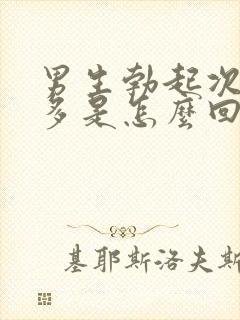 男生勃起次
多是怎麼回
基耶斯洛夫斯